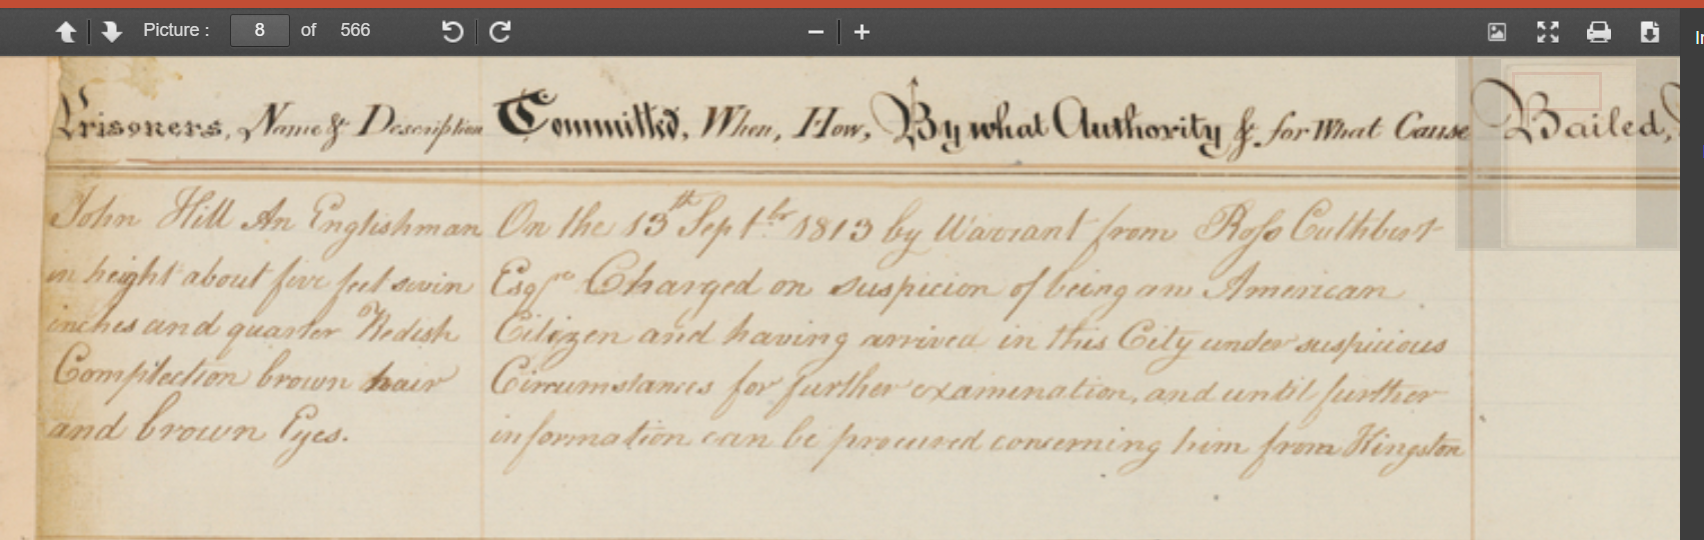 Picture : 8 of 566
Prisoners, Name & Description Committed, When, How, By what Authority & for What Cause Bailed,
John Hill An Englishman
in height about five feet sevin
inches and quarter Redish
Complection brown hair
and brown Eyes.
On the 13th Septbr 1813 by Warrant from Ross Cuthbert
Esqre Charged on suspicion of being an American
Citizen and having arrived in this City under suspicious
Circumstances for further examination, and until further
information can be procured concerning him from Kingston